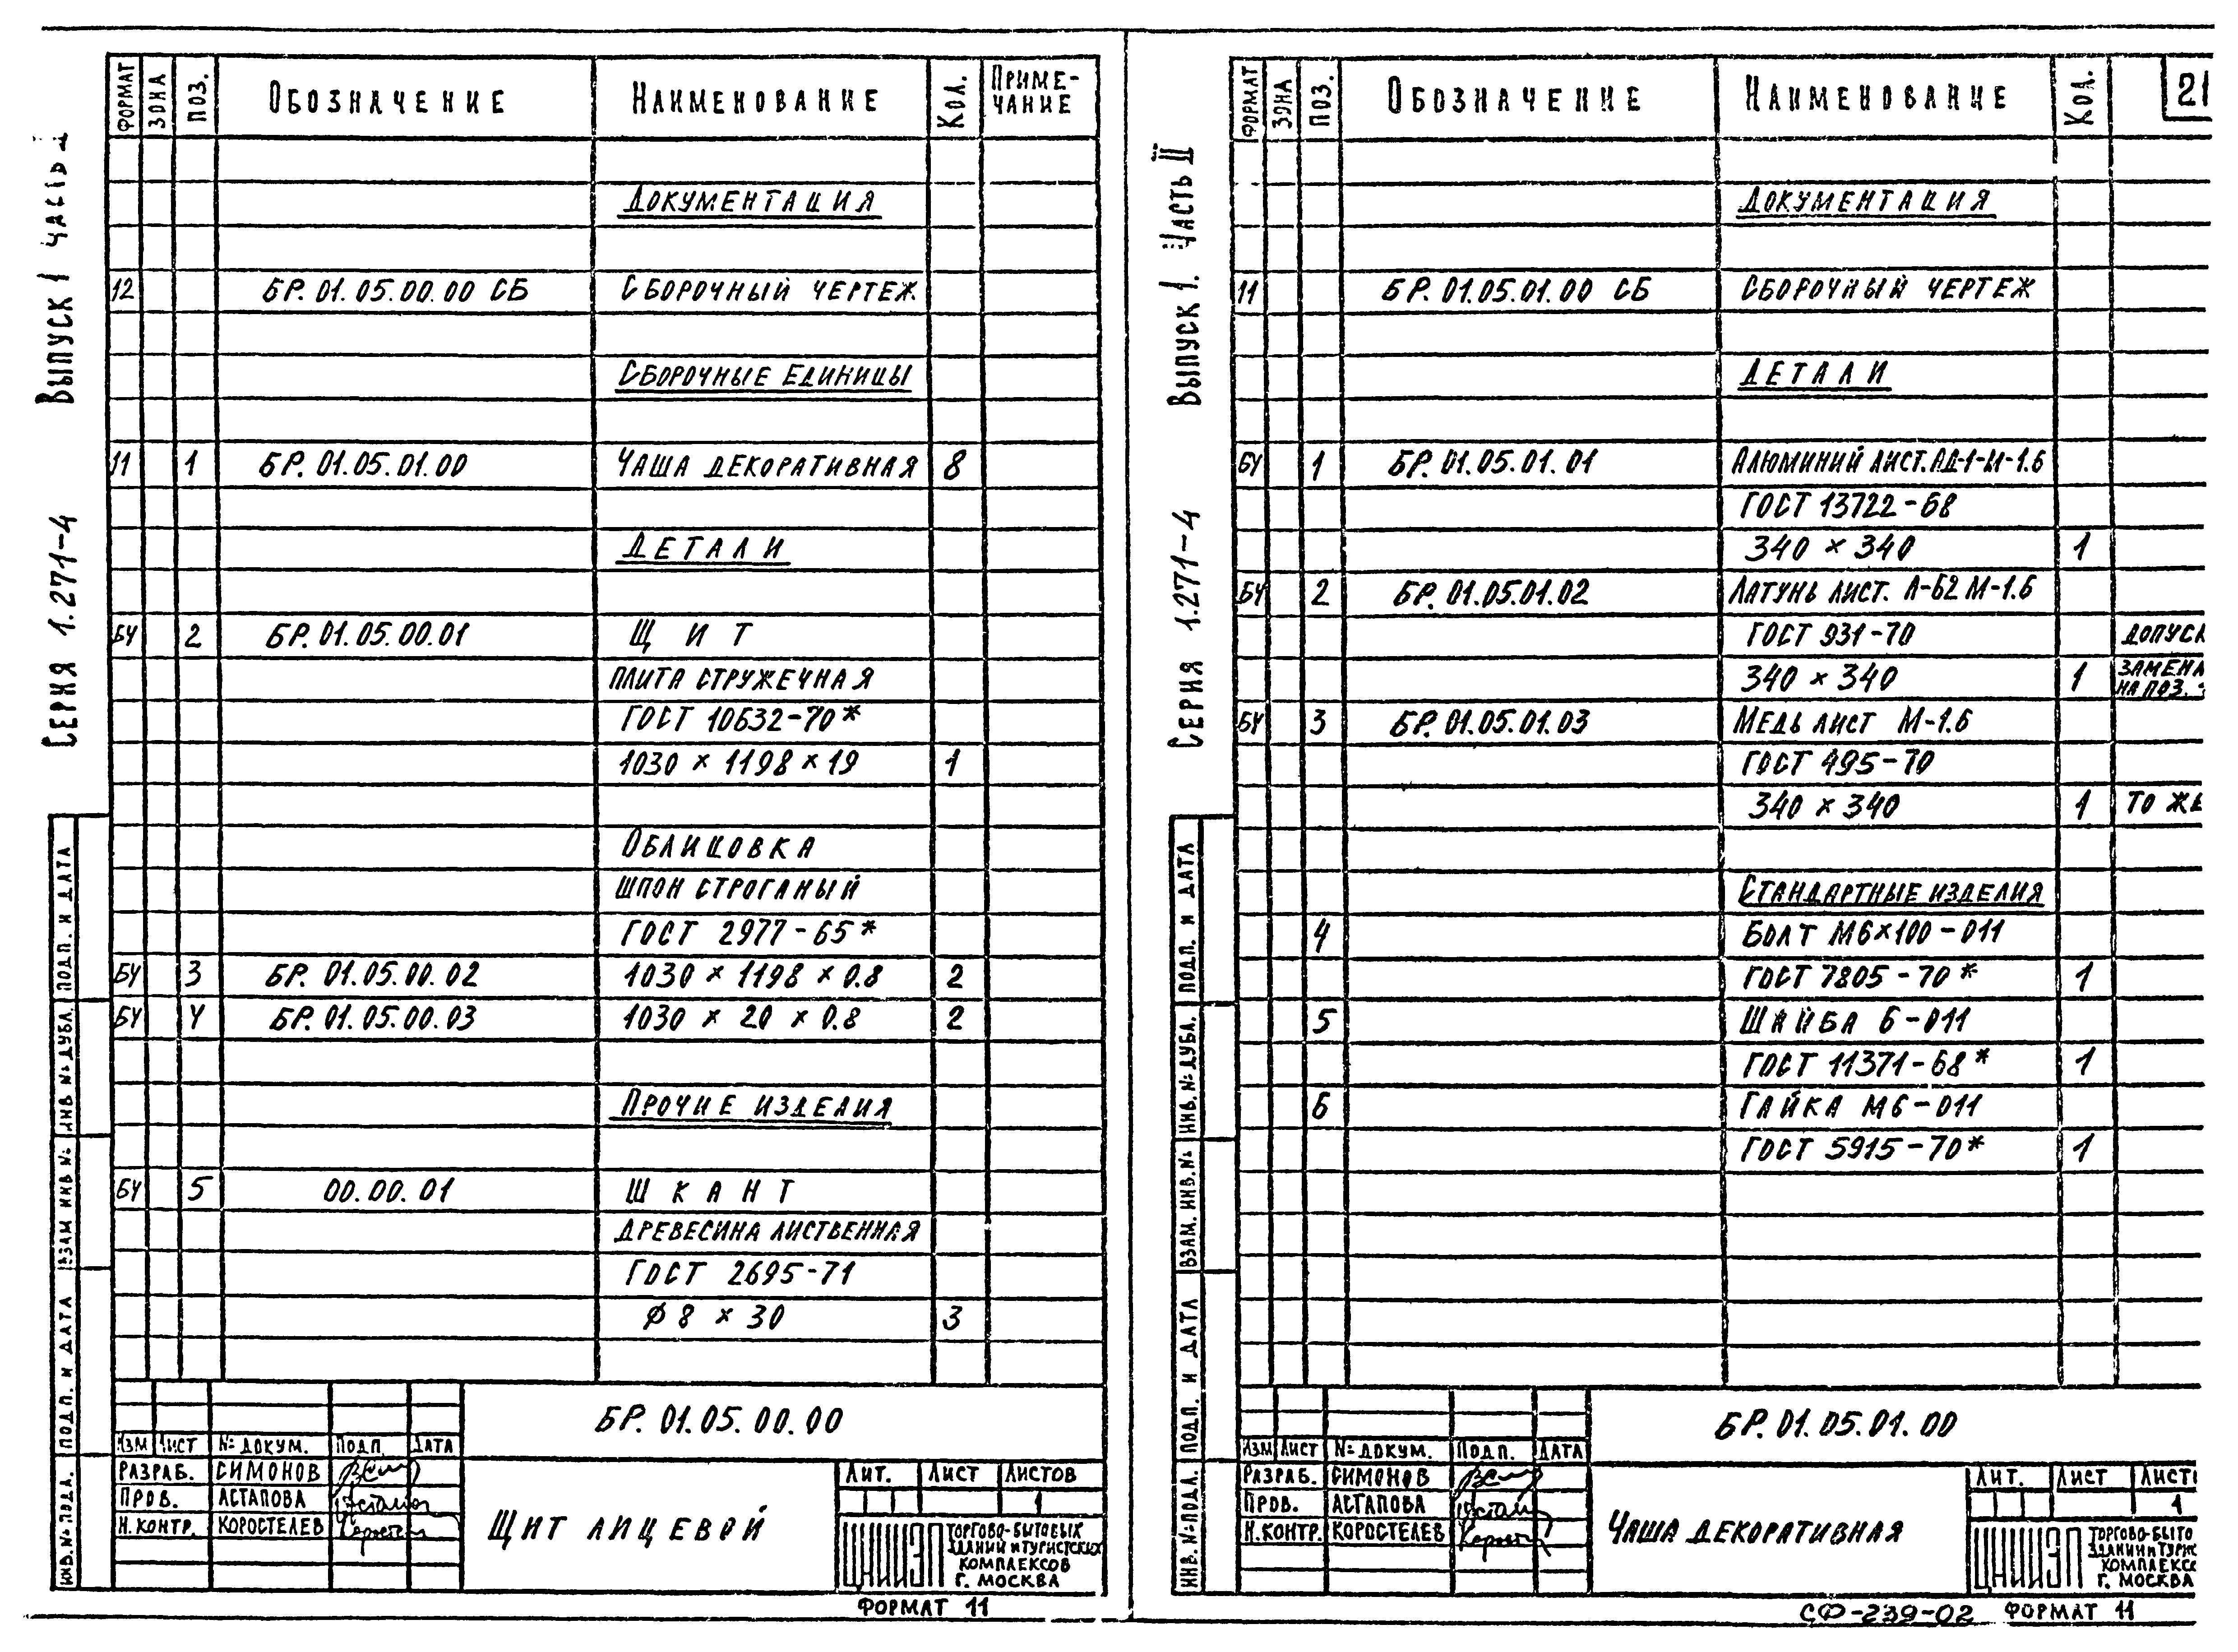 ФОРМАТ ЗОНА ПОЗ. ОБОЗНАЧЕНИЕ НАИМЕНОВАНИЕ КОЛ. ПРИМЕ-
ЧАНИЕ
ДОКУМЕНТАЦИЯ
12 БР. 01. 05. 00. 00 СБ СБОРОЧНЫЙ ЧЕРТЕЖ
СБОРОЧНЫЕ ЕДИНИЦЫ
11 1 БР. 01. 05. 01. 00 ЧАША ДЕКОРАТИВНАЯ 8
ДЕТАЛИ
БЧ 2 БР. 01. 05. 00. 01 ЩИТ
ПЛИТА СТРУЖЕЧНАЯ
ГОСТ 10632-70*
1030 × 1198 × 19 1
ОБЛИЦОВКА
ШПОН СТРОГАНЫЙ
ГОСТ 2977-65*
БЧ 3 БР. 01. 05. 00. 02 1030 × 1198 × 0.8 2
БЧ 4 БР. 01. 05. 00. 03 1030 × 20 × 0.8 2
ПРОЧИЕ ИЗДЕЛИЯ
БЧ 5 00. 00. 01 ШКАНТ
ДРЕВЕСИНА ЛИСТВЕННАЯ
ГОСТ 2695-71
Ф 8 × 30 3
СЕРИЯ 1.271-4 ВЫПУСК 1 ЧАСТЬ
ИНВ. № ПОДЛ. ПОДП. И ДАТА ВЗАМ ИНВ № ИНВ № ДУБЛ. ПОДП. И ДАТА
БР. 01. 05. 00. 00
ИЗМ ЛИСТ № ДОКУМ. ПОДП. ДАТА
РАЗРАБ. СИМОНОВ
ПРОВ. АСТАПОВА
Н. КОНТР. КОРОСТЕЛЕВ
ЩИТ ЛИЦЕВОЙ
ЛИТ. ЛИСТ ЛИСТОВ
1
ЦНИИЭП ТОРГОВО-БЫТОВЫХ
ЗДАНИЙ И ТУРИСТСКИХ
КОМПЛЕКСОВ
Г. МОСКВА
ФОРМАТ 11
21
ФОРМАТ ЗОНА ПОЗ. ОБОЗНАЧЕНИЕ НАИМЕНОВАНИЕ КОЛ.
ДОКУМЕНТАЦИЯ
11 БР. 01. 05. 01. 00 СБ СБОРОЧНЫЙ ЧЕРТЕЖ
ДЕТАЛИ
БЧ 1 БР. 01. 05. 01. 01 АЛЮМИНИЙ ЛИСТ. АД-1-Н-1.6
ГОСТ 13722-68
340 × 340 1
БЧ 2 БР. 01. 05. 01. 02 ЛАТУНЬ ЛИСТ. Л-62 М-1.6
ГОСТ 931-70 ДОПУСК
340 × 340 1 ЗАМЕНА
НА ПОЗ.
БЧ 3 БР. 01. 05. 01. 03 МЕДЬ ЛИСТ М-1.6
ГОСТ 495-70
340 × 340 1 ТО ЖЕ
СТАНДАРТНЫЕ ИЗДЕЛИЯ
4 БОЛТ М6×100-011
ГОСТ 7805-70* 1
5 ШАЙБА 6-011
ГОСТ 11371-68* 1
6 ГАЙКА М6-011
ГОСТ 5915-70* 1
СЕРИЯ 1.271-4 ВЫПУСК 1. ЧАСТЬ II
ИНВ. № ПОДЛ. ПОДП. И ДАТА ВЗАМ. ИНВ. № ИНВ. № ДУБЛ. ПОДП. И ДАТА
БР. 01. 05. 01. 00
ИЗМ ЛИСТ № ДОКУМ. ПОДП. ДАТА
РАЗРАБ. СИМОНОВ
ПРОВ. АСТАПОВА
Н. КОНТР. КОРОСТЕЛЕВ
ЧАША ДЕКОРАТИВНАЯ
ЛИТ. ЛИСТ ЛИСТ
1
ЦНИИЭП ТОРГОВО-БЫТО
ЗДАНИЙ И ТУРИС
КОМПЛЕКСО
Г. МОСКВА
СФ-239-02 ФОРМАТ 11